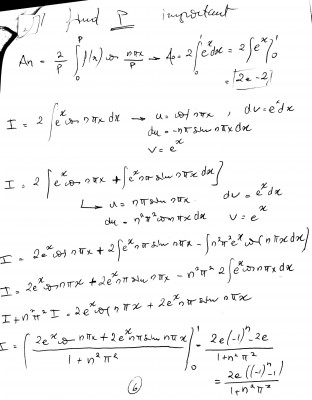 [2] find P important
An = 2/P ∫₀ᴾ f(x) cos nπx/P → A₀ = 2∫₀¹ eˣdx = 2[eˣ]₀¹
= 2e-2
I = 2 ∫ eˣ cos nπx dx → u = cos nπx , dv = eˣdx
du = -nπ sin nπx dx
v = eˣ
I = 2 [eˣ cos nπx + ∫ eˣ nπ sin nπx dx]
↳ u = nπ sin nπx . dv = eˣdx
du = n²π² cos nπx dx v = eˣ
I = 2eˣ cos nπx + 2[eˣ nπ sin nπx - ∫ n²π² eˣ cos nπx dx]
I = 2eˣ cos nπx + 2eˣ nπ sin nπx - n²π² 2∫ eˣ cos nπx dx
I + n²π² I = 2eˣ cos nπx + 2eˣ nπ sin nπx
I = [2eˣ cos nπx + 2eˣ nπ sin nπx / 1+n²π²]₀¹ = 2e(-1)ⁿ-2e / 1+n²π²
= 2e((-1)ⁿ-1) / 1+n²π²
6